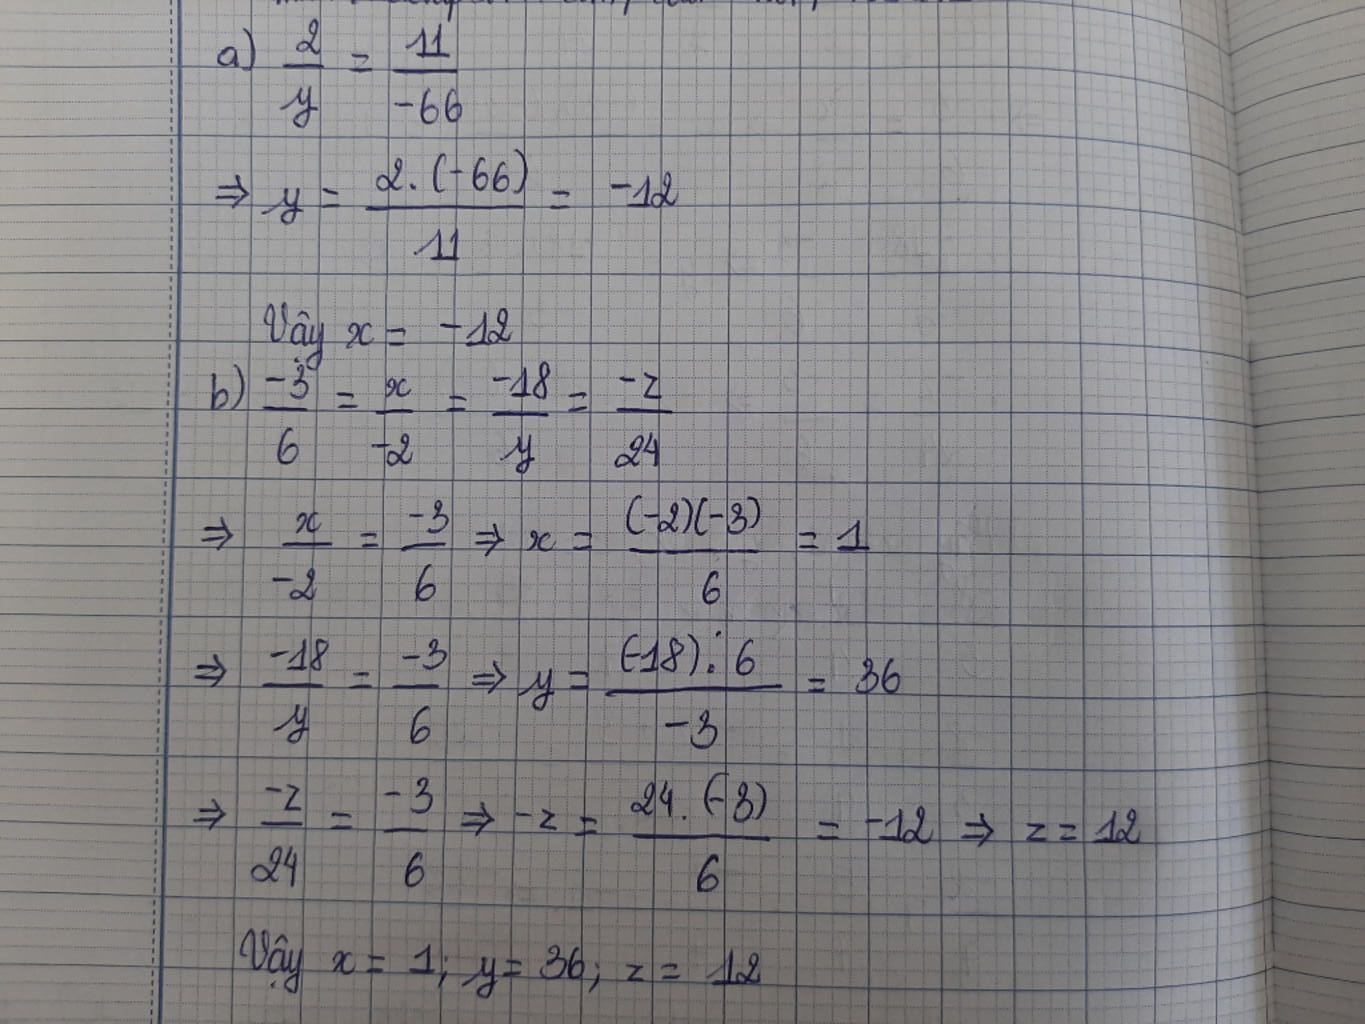 a) 2/y = 11/-66
⇒ y = 2.(-66)/11 = -12
Vậy x = -12
b) -3/6 = x/-2 = -18/y = -z/24
⇒ x/-2 = -3/6 ⇒ x = (-2)(-3)/6 = 1
⇒ -18/y = -3/6 ⇒ y = (-18):6/-3 = 36
⇒ -z/24 = -3/6 ⇒ -z = 24.(-3)/6 = -12 ⇒ z = 12
Vậy x = 1; y = 36; z = 12